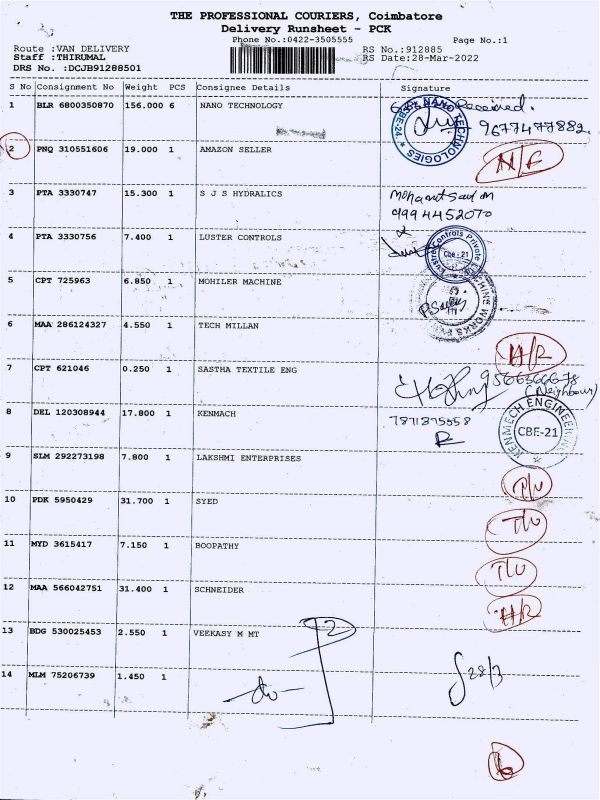 THE PROFESSIONAL COURIERS, Coimbatore
Delivery Runsheet - PCK
Phone No.:0422-3505555 Page No.:1
Route :VAN DELIVERY RS No.:912885
Staff :THIRUMAL RS Date:28-Mar-2022
DRS No. :DCJB91288501
S No Consignment No Weight PCS Consignee Details Signature
1 BLR 6800350870 156.000 6 NANO TECHNOLOGY Received.
NANO TECHNOLOGIES CBE-24
9677477882
2 PNQ 310551606 19.000 1 AMAZON SELLER
3 PTA 3330747 15.300 1 S J S HYDRALICS
9994452070
4 PTA 3330756 7.400 1 LUSTER CONTROLS Cbe-21
5 CPT 725963 6.850 1 MOHILER MACHINE
6 MAA 286124327 4.550 1 TECH MILLAN
7 CPT 621046 0.250 1 SASTHA TEXTILE ENG
(Neighbour)
8 DEL 120308944 17.800 1 KENMACH
KENMECH ENGINEERING CBE-21
9 SLM 292273198 7.800 1 LAKSHMI ENTERPRISES
10 PDK 5950429 31.700 1 SYED
11 MYD 3615417 7.150 1 BOOPATHY
12 MAA 566042751 31.400 1 SCHNEIDER
13 BDG 530025453 2.550 1 VEEKASY M MT 2
14 MLM 75206739 1.450 1 28/3
6